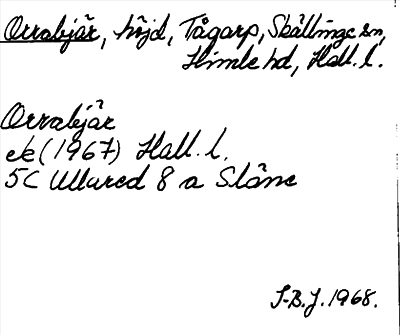 Orrabjär, höjd, Tågarp, Skällinge sn,
Himle hd, Hall. l.
Orrabjär
ek (1967) Hall. l.
5C Ullared 8 a Släne
S-B.J. 1968.